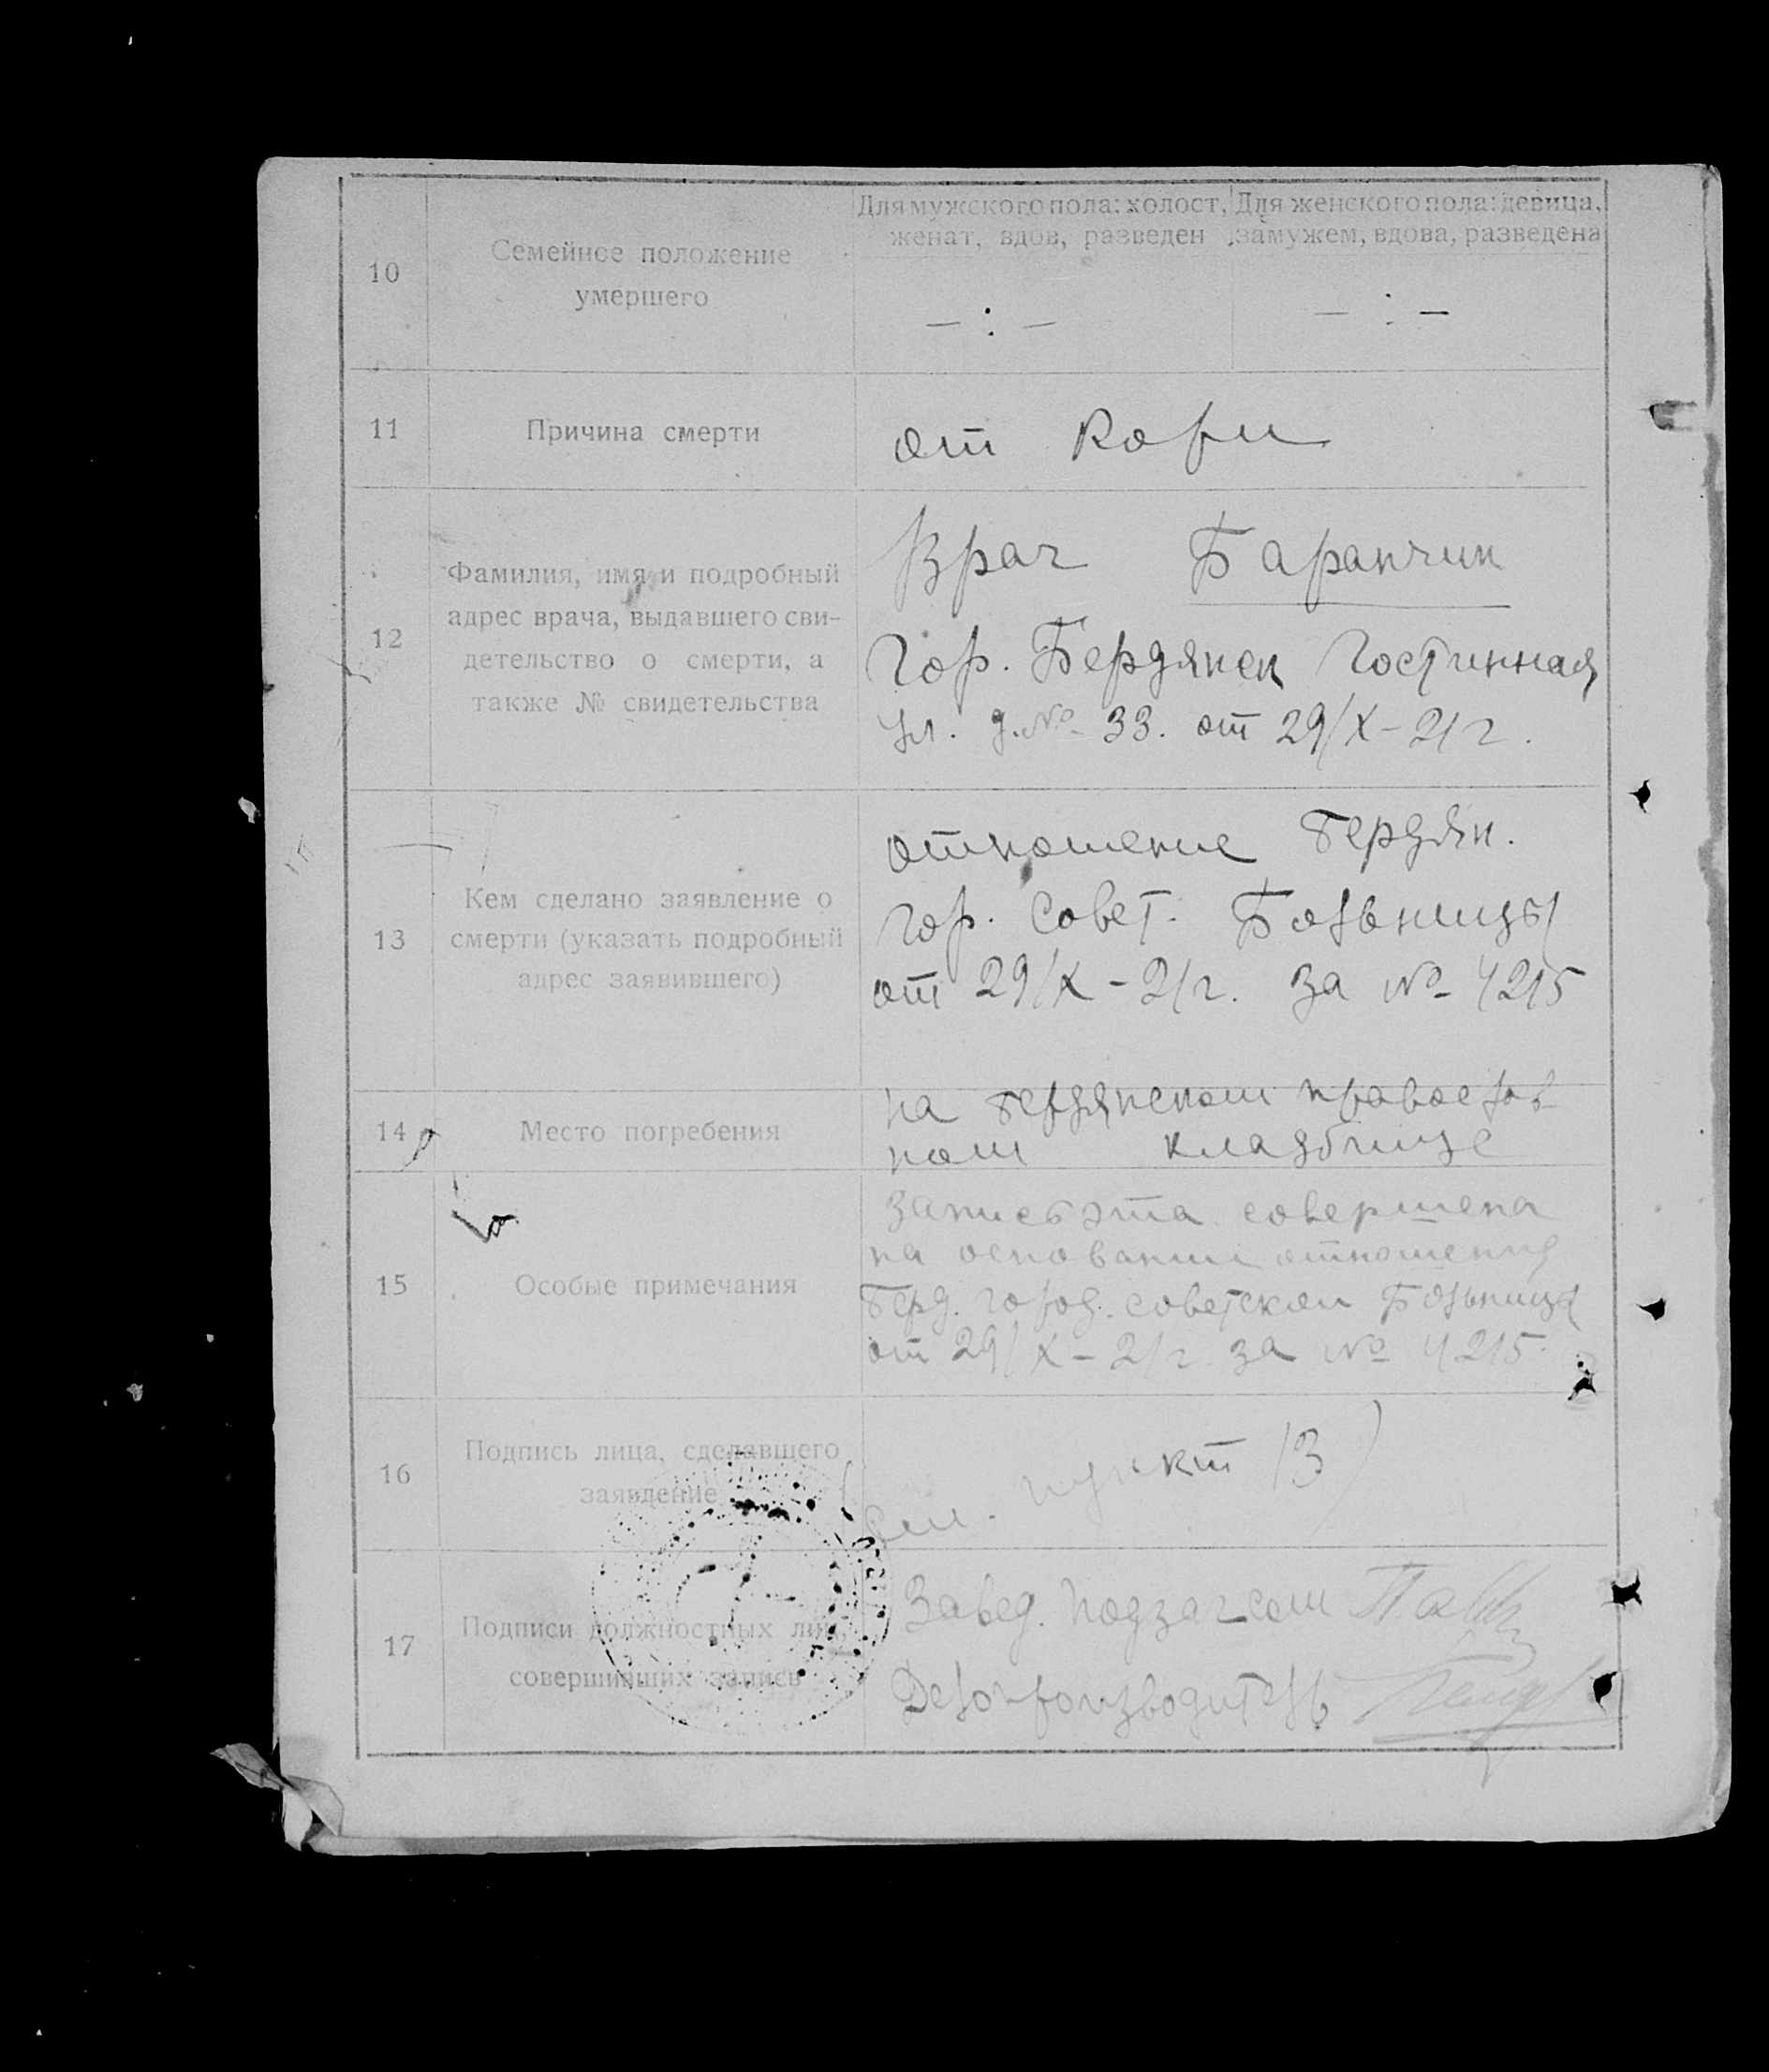 10
Семейное положение
умершего
Для мужского пола: холост,
женат, вдов, разведен
Для женского пола: девица,
замужем, вдова, разведена
— : —
— : —
11
Причина смерти
от Кори
12
Фамилия, имя и подробный
адрес врача, выдавшего сви-
детельство о смерти, а
также № свидетельства
Врач Баранчик
Гор. Бердянск Гостинная
ул. д. № 33. от 29/X-21г.
13
Кем сделано заявление о
смерти (указать подробный
адрес заявившего)
отношение Бердян.
Гор. Совет. Больницы
от 29/X-21г. за № 4215
14
Место погребения
на Бердянском православ
ном кладбище
15
Особые примечания
Запись эта совершена
на основании отношения
Берд. город. советской Больницы
от 29/X-21г. за № 4215.
16
Подпись лица, сделавшего
заявление
(см. пункт 13)
17
Подписи должностных лиц,
совершивших запись
Завед. Подзагсом
Делопроизводитель